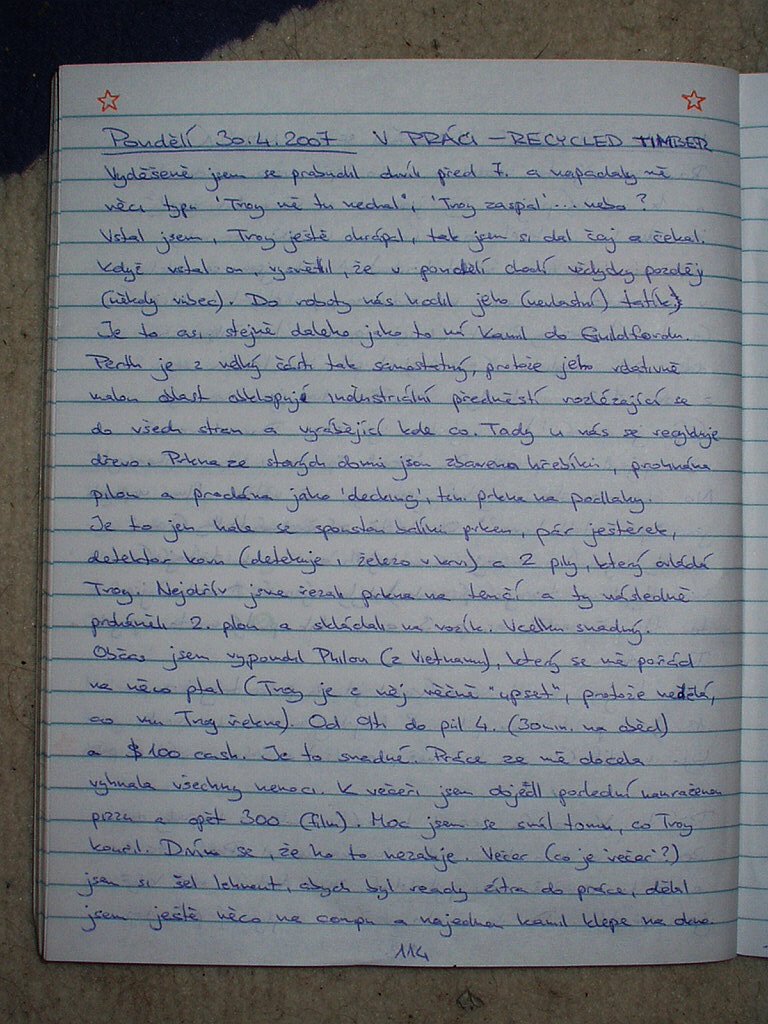 Pondělí 30.4.2007 V PRÁCI – RECYCLED TIMBER
Vyděšeně jsem se probudil chvík před 7. a napadaly mě
věci typu 'Troy mě tu nechal', 'Troy zaspal'... nebo?
Vstal jsem, Troy ještě chrápal, tak jsem si dal čaj a čekal.
Když vstal on, vysvětlil, že v pondělí chodí vždycky pozděj
(někdy vůbec). Do roboty nás hodil jeho (nevlastní) taťík
Je to asi stejně daleko jako to má Kamil do Guildfordu.
Perth je z velký části tak samostatný, protože jeho relativně
malou oblast obklopuje industriální předměstí rozlézající se
do všech stran a vyrábějící kde co. Tady u nás se recykluje
dřevo. Prkna ze starých domů jsou zbavena hřebíků, prohnána
pilou a prodána jako 'decking', tzn. prkna na podlahy.
Je to jen hala se spoustou balíků prken, pár ještěrek,
detektor kovu (detekuje i železo v krvi) a 2 pily, který ovládá
Troy. Nejdřív jsme řezali prkna na tenčí a ty následně
proháněli 2. pilou a skládali na vozík. Vcelku snadný.
Občas jsem vypomohl Philovi (z Vietnamu), který se mě pořád
na něco ptal (Troy je z něj věčně "upset", protože nedělá,
co mu Troy řekne). Od 9ti do půl 4. (30min. na oběd)
a $100 cash. Je to snadné. Práce ze mě docela
vyhnala všechny nemoci. K večeři jsem objedl poslední namraženou
pizzu a opět 300 (film). Moc jsem se smál tomu, co Troy
kouřil. Divím se, že ho to nezabije. Večer (co je 'večer'?)
jsem si šel lehnout, abych byl ready zítra do práce, dělal
jsem ještě něco na compu a najednou Kamil klepe na okno.
114